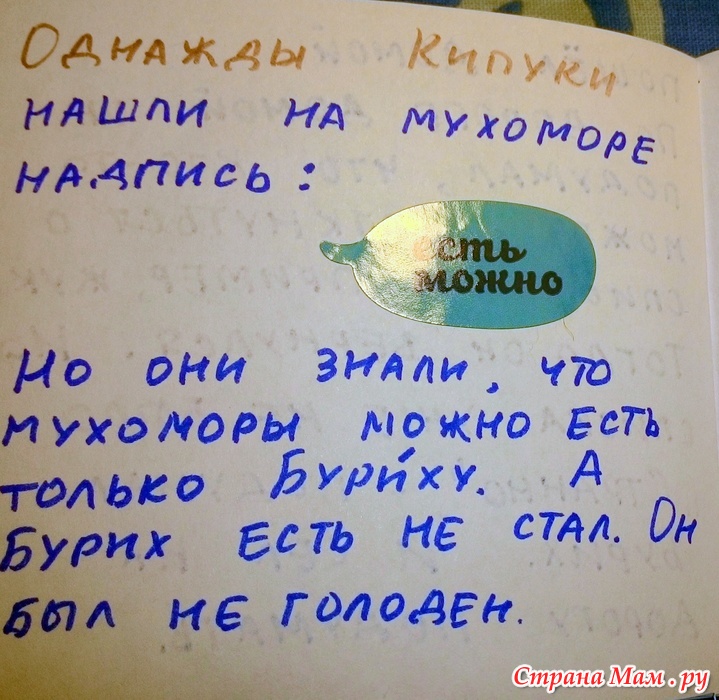 Однажды Кипуки
нашли на мухоморе
надпись:
есть
можно
Но они знали, что
мухоморы можно есть
только Бури́ху. А
Бурих есть не стал. Он
был не голоден.
Страна Мам.ру